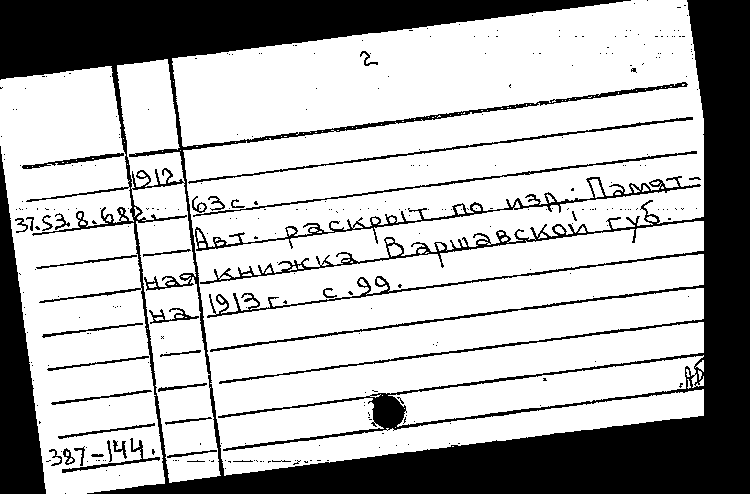 2
1912.
37.53.8.682. 63с.
Авт. раскрыт по изд.: Памят-
ная книжка Варшавской губ.
на 1913г. с.99.
АБ
387-144.